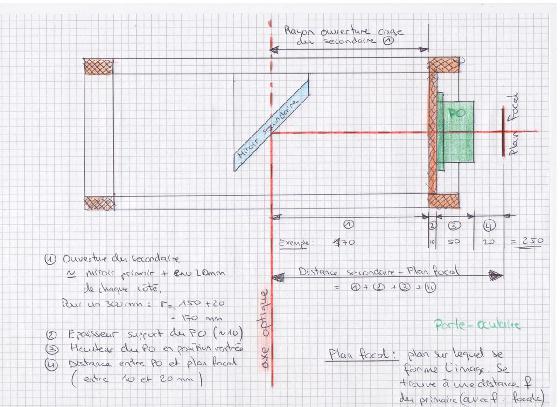 Rayon ouverture cage
du secondaire ①
Miroir secondaire
PO
Plan Focal
① ② ③ ④
Exemple 170 10 50 20 = 250
Distance secondaire - Plan focal
= ① + ② + ③ + ④
axe optique
Porte-oculaire
① Ouverture du secondaire
≈ miroir primaire + env 20mm
de chaque côté.
Pour un 300mm : r = 150 + 20
= 170 mm
② Epaisseur support du PO (~10)
③ Hauteur du PO en position rentrée
④ Distance entre PO et plan focal
(entre 10 et 20 mm)
Plan focal : plan sur lequel se
forme l'image. Se
trouve à une distance f
du primaire (avec f = focale)